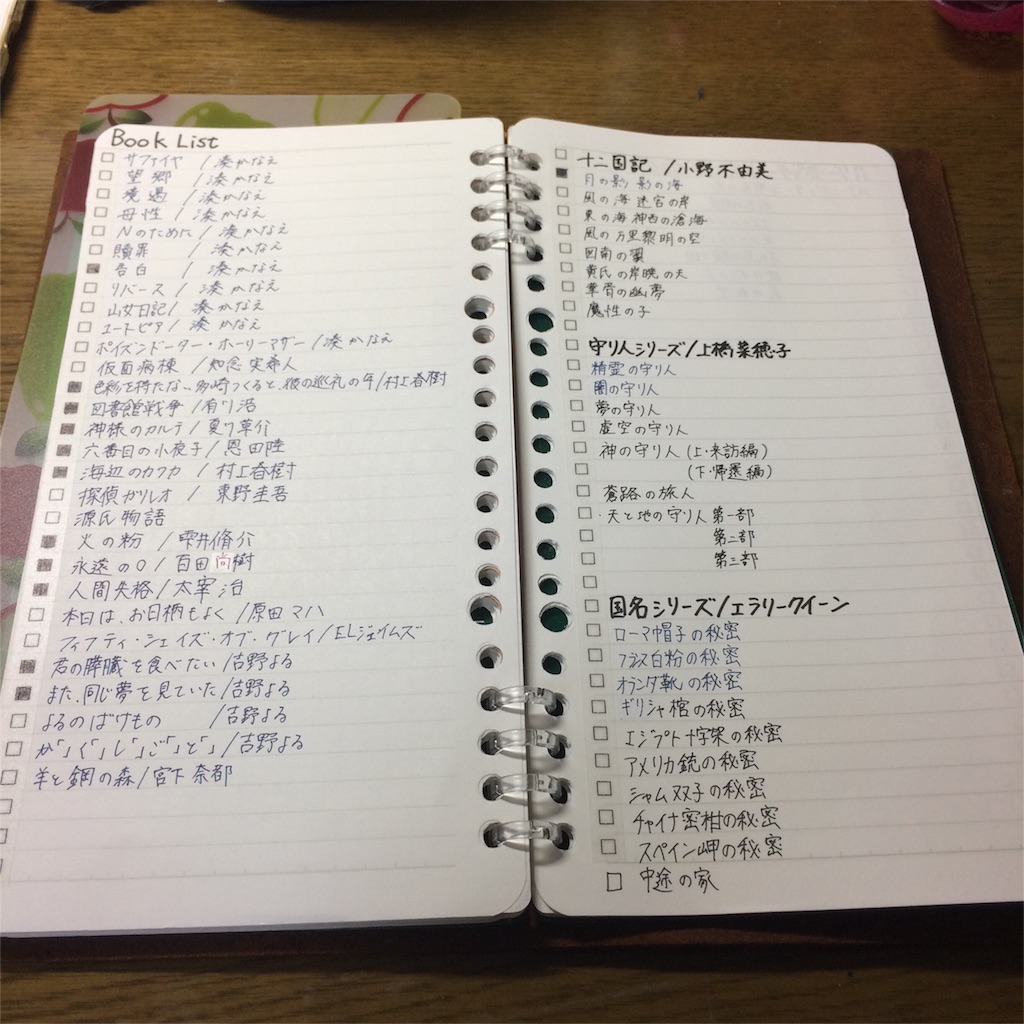 Book List
サファイヤ / 湊かなえ
望郷 / 湊かなえ
境遇 / 湊かなえ
母性 / 湊かなえ
Nのために / 湊かなえ
贖罪 / 湊かなえ
告白 / 湊かなえ
リバース / 湊かなえ
山女日記 / 湊かなえ
ユートピア / 湊かなえ
ポイズンドーター・ホーリーマザー / 湊かなえ
仮面病棟 / 知念実希人
色彩を持たない多崎つくると、彼の巡礼の年/村上春樹
図書館戦争 / 有川浩
神様のカルテ / 夏川草介
六番目の小夜子 / 恩田陸
海辺のカフカ / 村上春樹
探偵ガリレオ / 東野圭吾
源氏物語
火の粉 / 雫井脩介
永遠の0 / 百田尚樹
人間失格 / 太宰治
本日は、お日柄もよく / 原田マハ
フィフティ・シェイズ・オブ・グレイ/ELジェイムズ
君の膵臓を食べたい / 吉野よる
また、同じ夢を見ていた / 吉野よる
よるのばけもの / 吉野よる
か「」く「」し「」ご「」と「」 / 吉野よる
羊と鋼の森 / 宮下奈都
十二国記 / 小野不由美
月の影 影の海
風の海 迷宮の岸
東の海 神西の滄海
風の万里 黎明の空
図南の翼
黄氏の岸 暁の天
華胥の幽夢
魔性の子
守り人シリーズ/上橋菜穂子
精霊の守り人
闇の守り人
夢の守り人
虚空の守り人
神の守り人 (上・来訪編)
(下・帰還編)
蒼路の旅人
・天と地の守り人 第一部
第二部
第三部
国名シリーズ/エラリークイーン
ローマ帽子の秘密
フランス白粉の秘密
オランダ靴の秘密
ギリシャ棺の秘密
エジプト十字架の秘密
アメリカ銃の秘密
シャム双子の秘密
チャイナ蜜柑の秘密
スペイン岬の秘密
中途の家